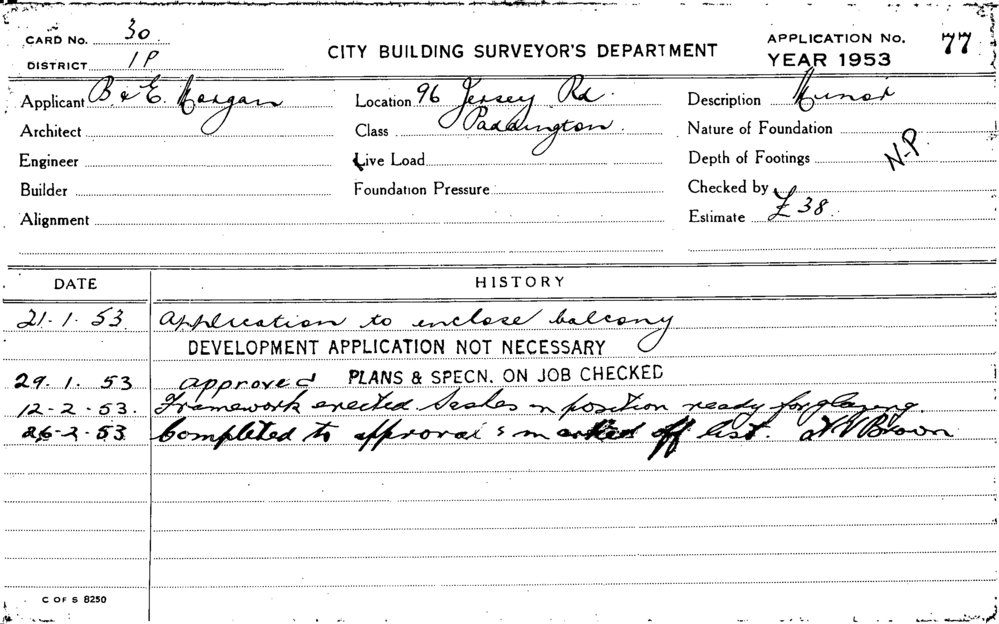 CARD No. 30
DISTRICT 1P
CITY BUILDING SURVEYOR'S DEPARTMENT
APPLICATION No. 77
YEAR 1953
Applicant B & E. Morgan
Architect
Engineer
Builder
Alignment
Location 96 Jersey Rd.
Class Paddington.
Live Load
Foundation Pressure
Description Minor
Nature of Foundation
Depth of Footings N-P.
Checked by
Estimate £38.
DATE HISTORY
21. 1. 53. Application to enclose balcony
DEVELOPMENT APPLICATION NOT NECESSARY
29. 1. 53 approved PLANS & SPECN. ON JOB CHECKED
12-2-53. Framework erected. Sashes in position ready for glazing.
26-2-53. Completed to approval & marked off list. Brown
C OF S 8250